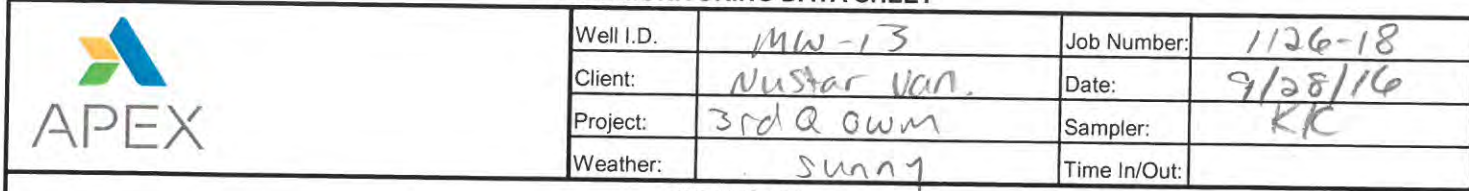 DATA SHEET
Well I.D. MW-13 Job Number: 1126-18
Client: Nustar Van. Date: 9/28/16
Project: 3rd Q GWM Sampler: KK
Weather: sunny Time In/Out:
APEX